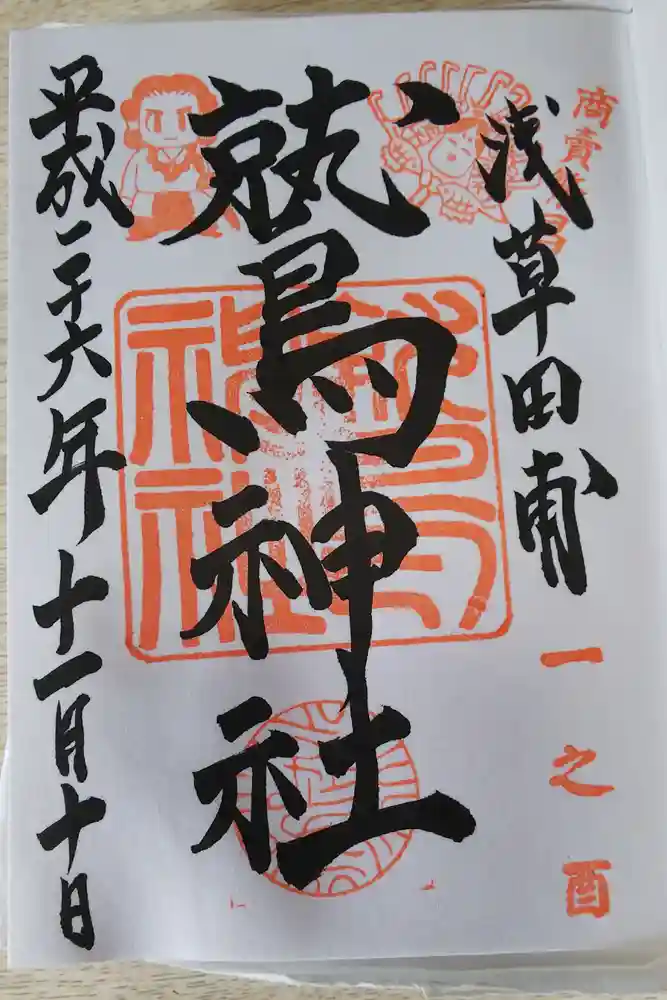 商賣
浅草田甫
一之酉
鷲神社
平成二十六年十一月十日